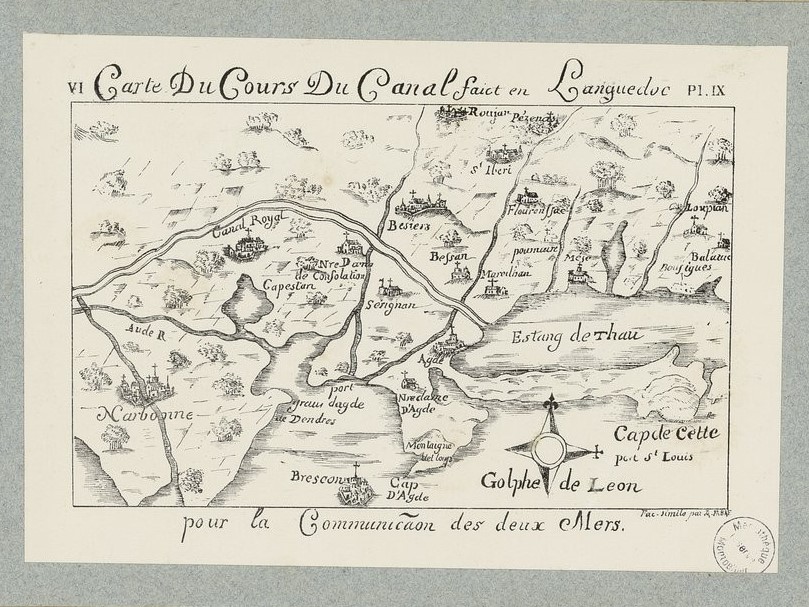 VI Carte Du Cours Du Canal faict en Languedoc Pl. IX
Roujan Pézenas
St Iberi
Loupian
Flourensac
Besiers
Canal Royal
Balaruc
Nre Dame
de Consolation
Bessan
pomairie
Mese
Bousigues
Maredian
Capestan
Serignan
Aude R.
Estang de Thau
Agde
port
Narbonne
graui dagde
de Dendres
Nre dame
D'Agde
Cap de Cette
port St Louis
Montaigne
del loup
Brescon
Cap
D'Agde
Golphe de Leon
Fac-simile par
pour la Communicãon des deux Mers.